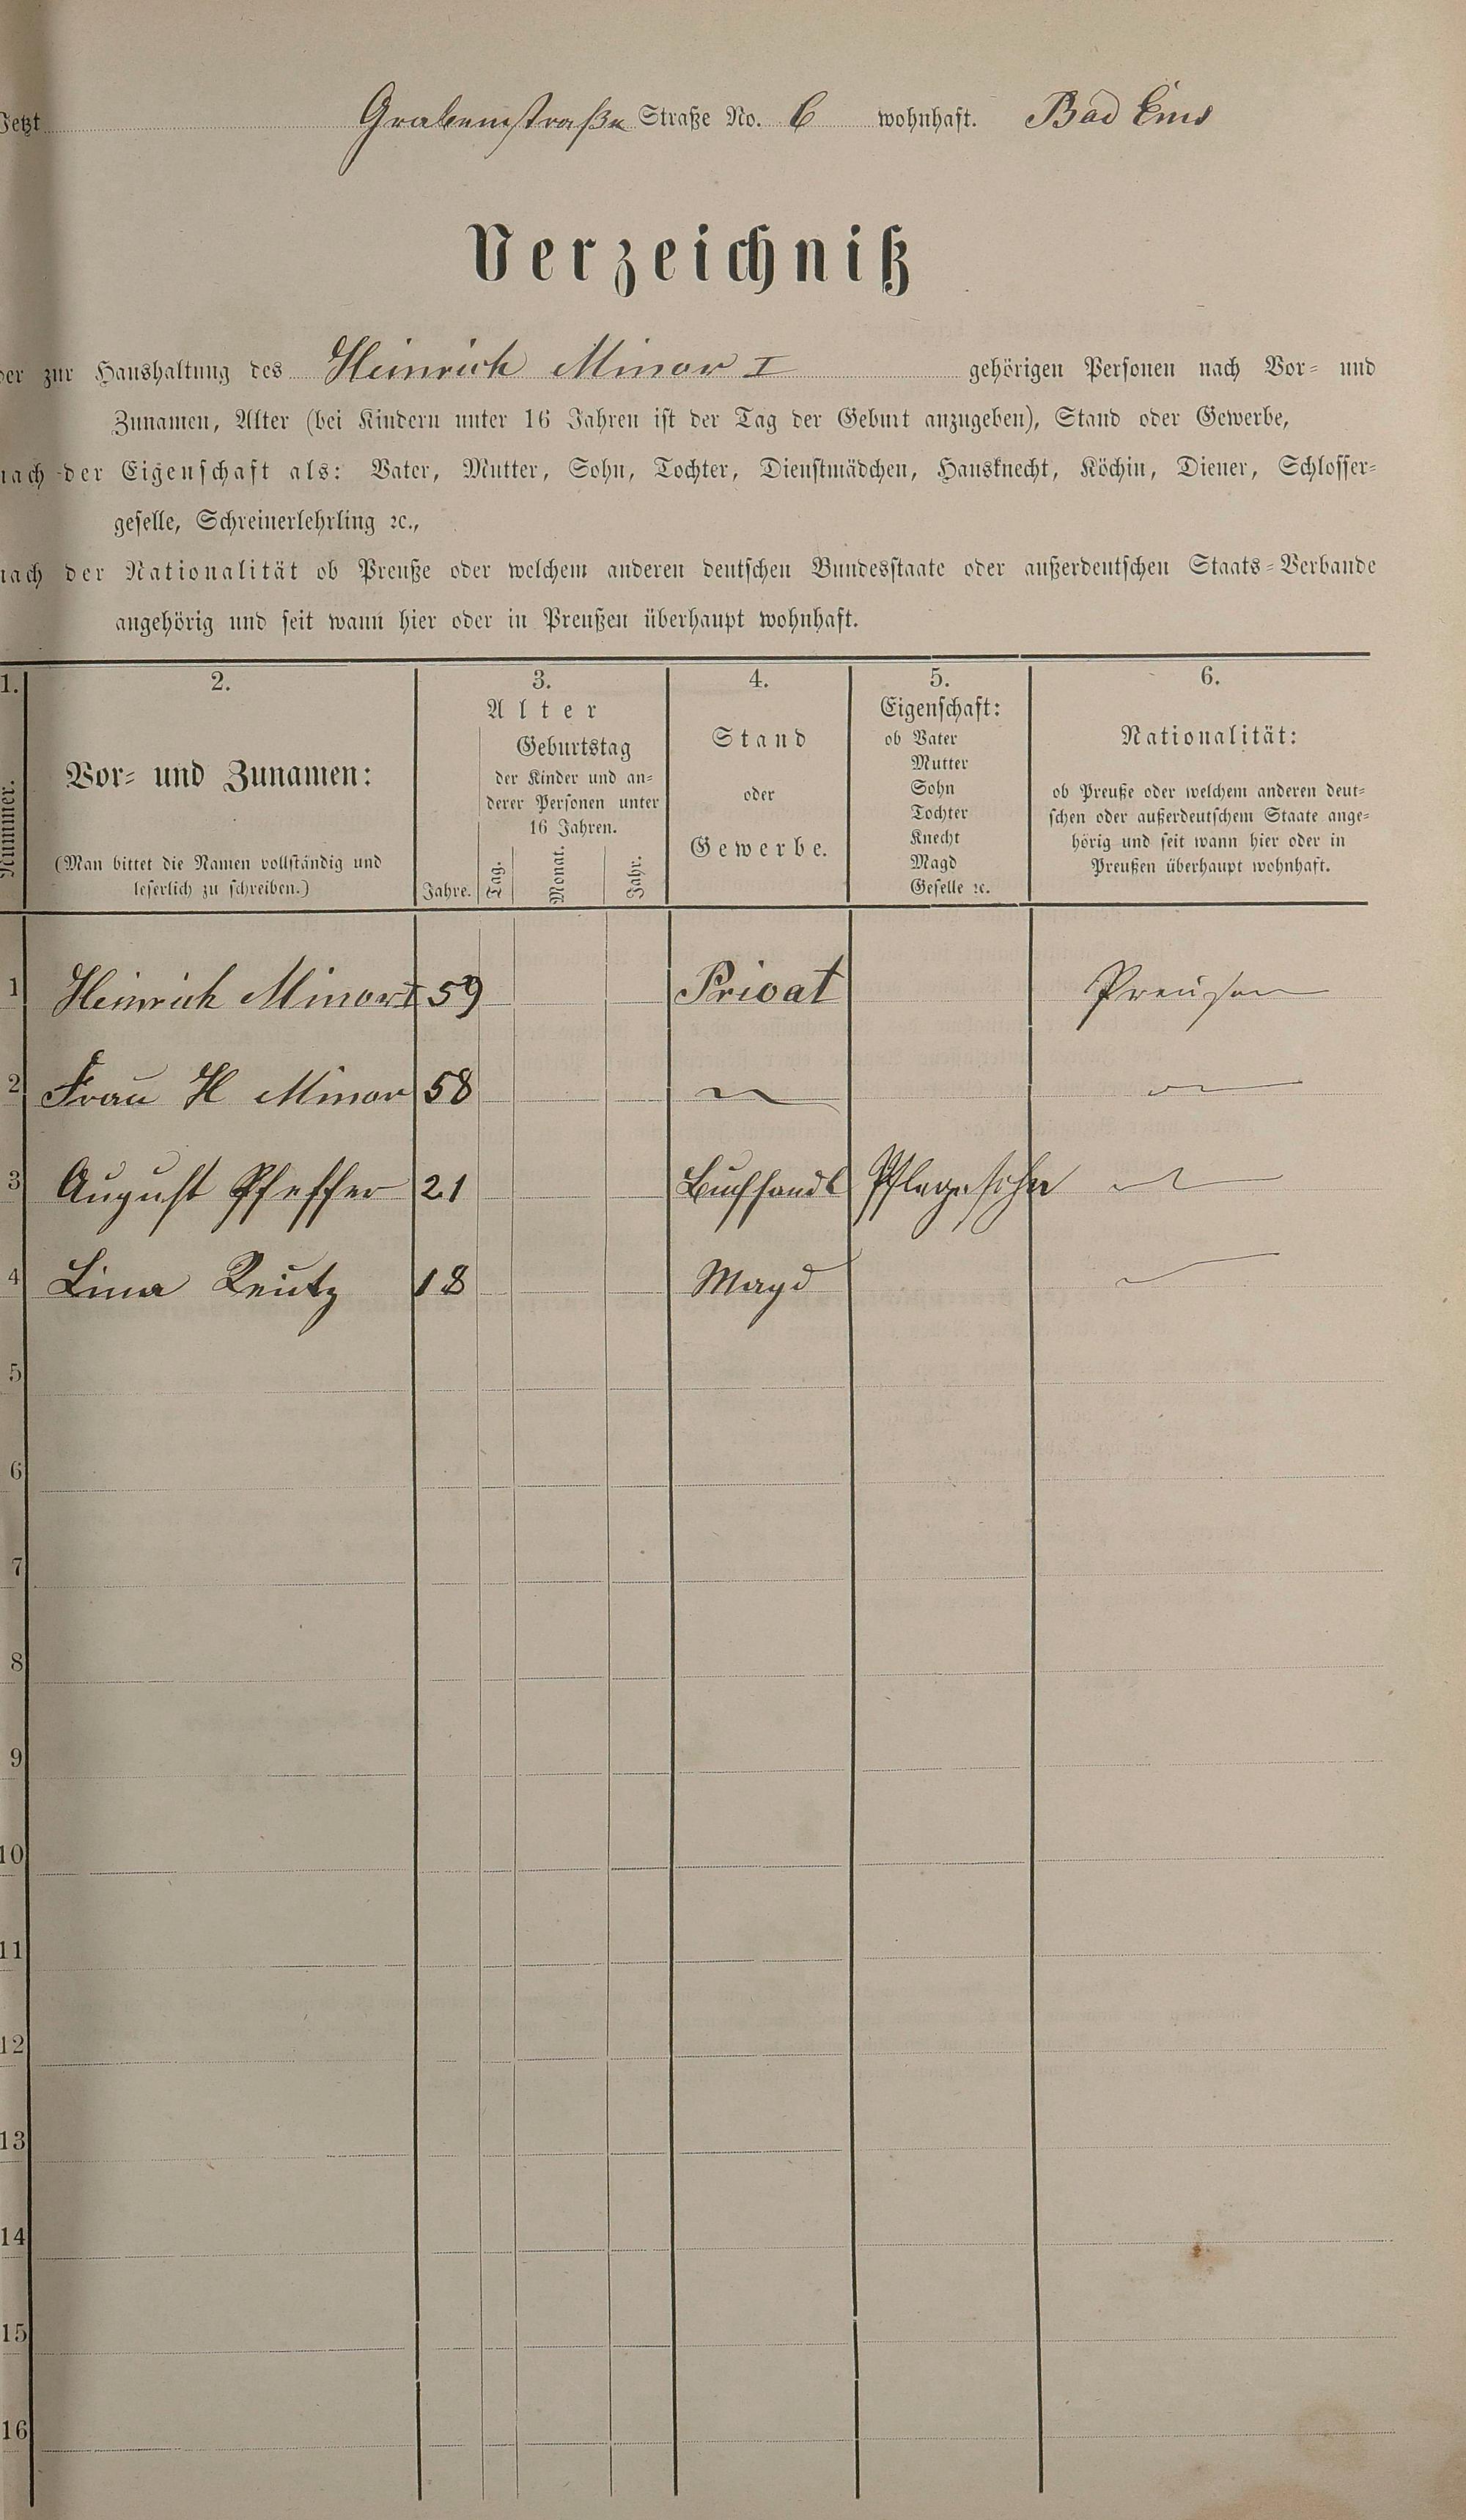 Jetzt Grabenstraße Straße No. 6 wohnhaft. Bad Ems
Verzeichniß
der zur Haushaltung des Heinrich Minor I gehörigen Personen nach Vor- und
Zunamen, Alter (bei Kindern unter 16 Jahren ist der Tag der Geburt anzugeben), Stand oder Gewerbe,
nach der Eigenschaft als: Vater, Mutter, Sohn, Tochter, Dienstmädchen, Hausknecht, Köchin, Diener, Schlosser-
geselle, Schreinerlehrling ꝛc.,
nach der Nationalität ob Preuße oder welchem anderen deutschen Bundesstaate oder außerdeutschen Staats-Verbande
angehörig und seit wann hier oder in Preußen überhaupt wohnhaft.
1.
Nummer.
2.
Vor- und Zunamen:
(Man bittet die Namen vollständig und
leserlich zu schreiben.)
3.
Alter
Jahre.
Geburtstag
der Kinder und an-
derer Personen unter
16 Jahren.
Tag.
Monat.
Jahr.
4.
Stand
oder
Gewerbe.
5.
Eigenschaft:
ob Vater
Mutter
Sohn
Tochter
Knecht
Magd
Geselle ꝛc.
6.
Nationalität:
ob Preuße oder welchem anderen deut-
schen oder außerdeutschem Staate ange-
hörig und seit wann hier oder in
Preußen überhaupt wohnhaft.
1 Heinrich Minor I 59 Privat Preußen
2 Frau H Minor 58
3 August Pfeffer 21 Buchhandl Pflegesohn
4 Lina 18 Magd
5
6
7
8
9
10
11
12
13
14
15
16